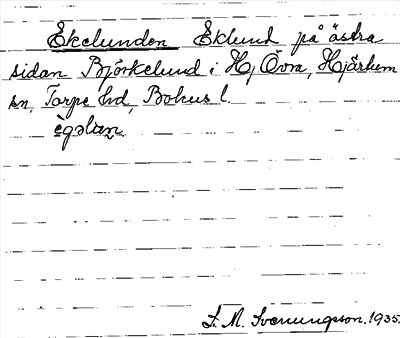 Ekelunden Eklund på östra
sidan Björkelund i Hj. Övra, Hjärtum
sn, Torpe hd, Bohus l.
S. M. Svenungsson. 1935.